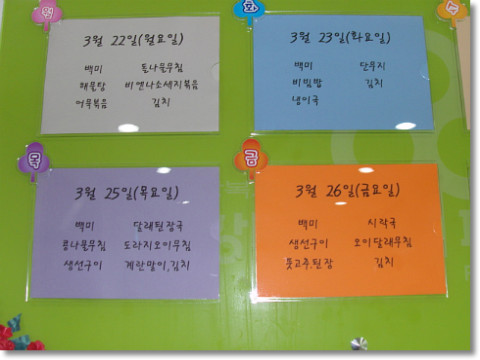 월
3월 22일(월요일)
백미 돌나물무침
해물탕 비엔나소세지볶음
어묵볶음 김치
화
3월 23일(화요일)
백미 단무지
비빔밥 김치
냉이국
수
목
3월 25일(목요일)
백미 달래된장국
콩나물무침 도라지오이무침
생선구이 계란말이,김치
금
3월 26일(금요일)
백미 시락국
생선구이 오이달래무침
풋고추,된장 김치